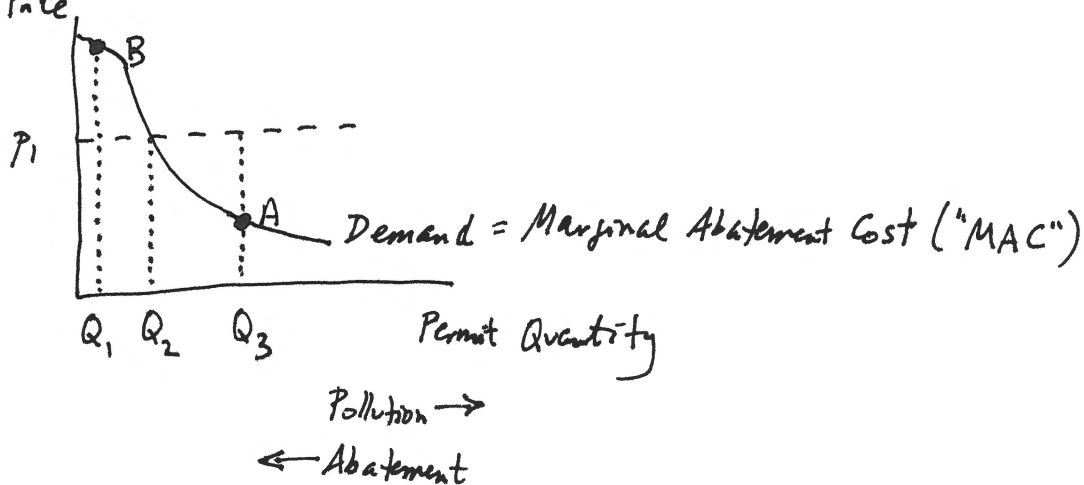 B
P₁
A
Demand = Marginal Abatement Cost ("MAC")
Q₁ Q₂ Q₃ Permit Quantity
Pollution →
← Abatement